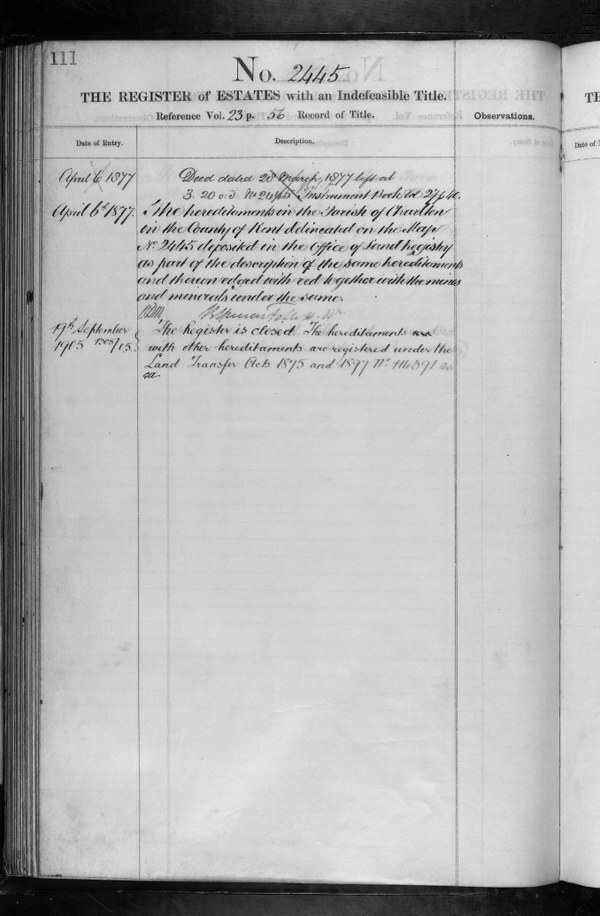 111
No. 2445
THE REGISTER of ESTATES with an Indefeasible Title.
Reference Vol. 23 p. 56 Record of Title.
Observations.
Date of Entry.
Description.
April 6 1877
Deed dated 20 March, 1877 left at
3. 20 o.d No 2445 Instrument Book
April 6th 1877.
The hereditements in the Parish of Charlton
in the County of Kent delineated on the Map
No 2445 deposited in the Office of Land Registry
as part of the description of the same hereditaments
and thereon edged with red together with the mines
and minerals under the same.
19th September
1905
The Register is closed. The hereditaments
with other hereditaments are registered under the
Land Transfer Acts 1875 and 1897 No